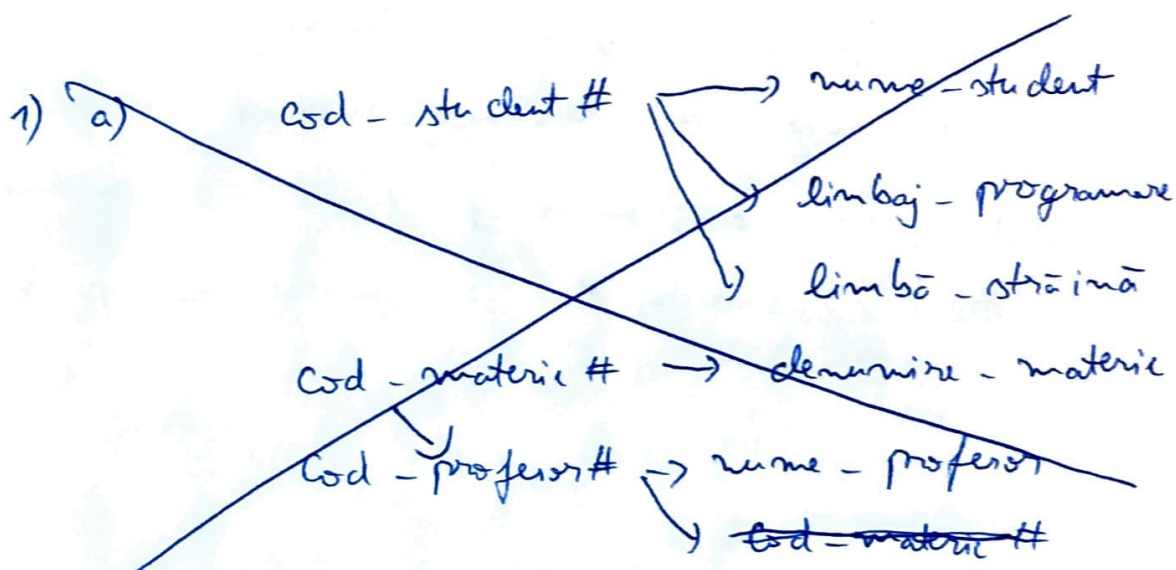 1) a) cod - student # → nume - student
limbaj - programare
limbă - străină
cod - materie # → denumire - materie
cod - profesor # → nume - profesor
cod - materie #